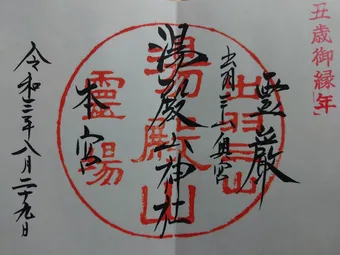 丑歳御縁年
靈巌
出羽三山奥宮
湯殿山神社
本宮
令和三年八月二十九日
出羽三山
湯殿山
靈場